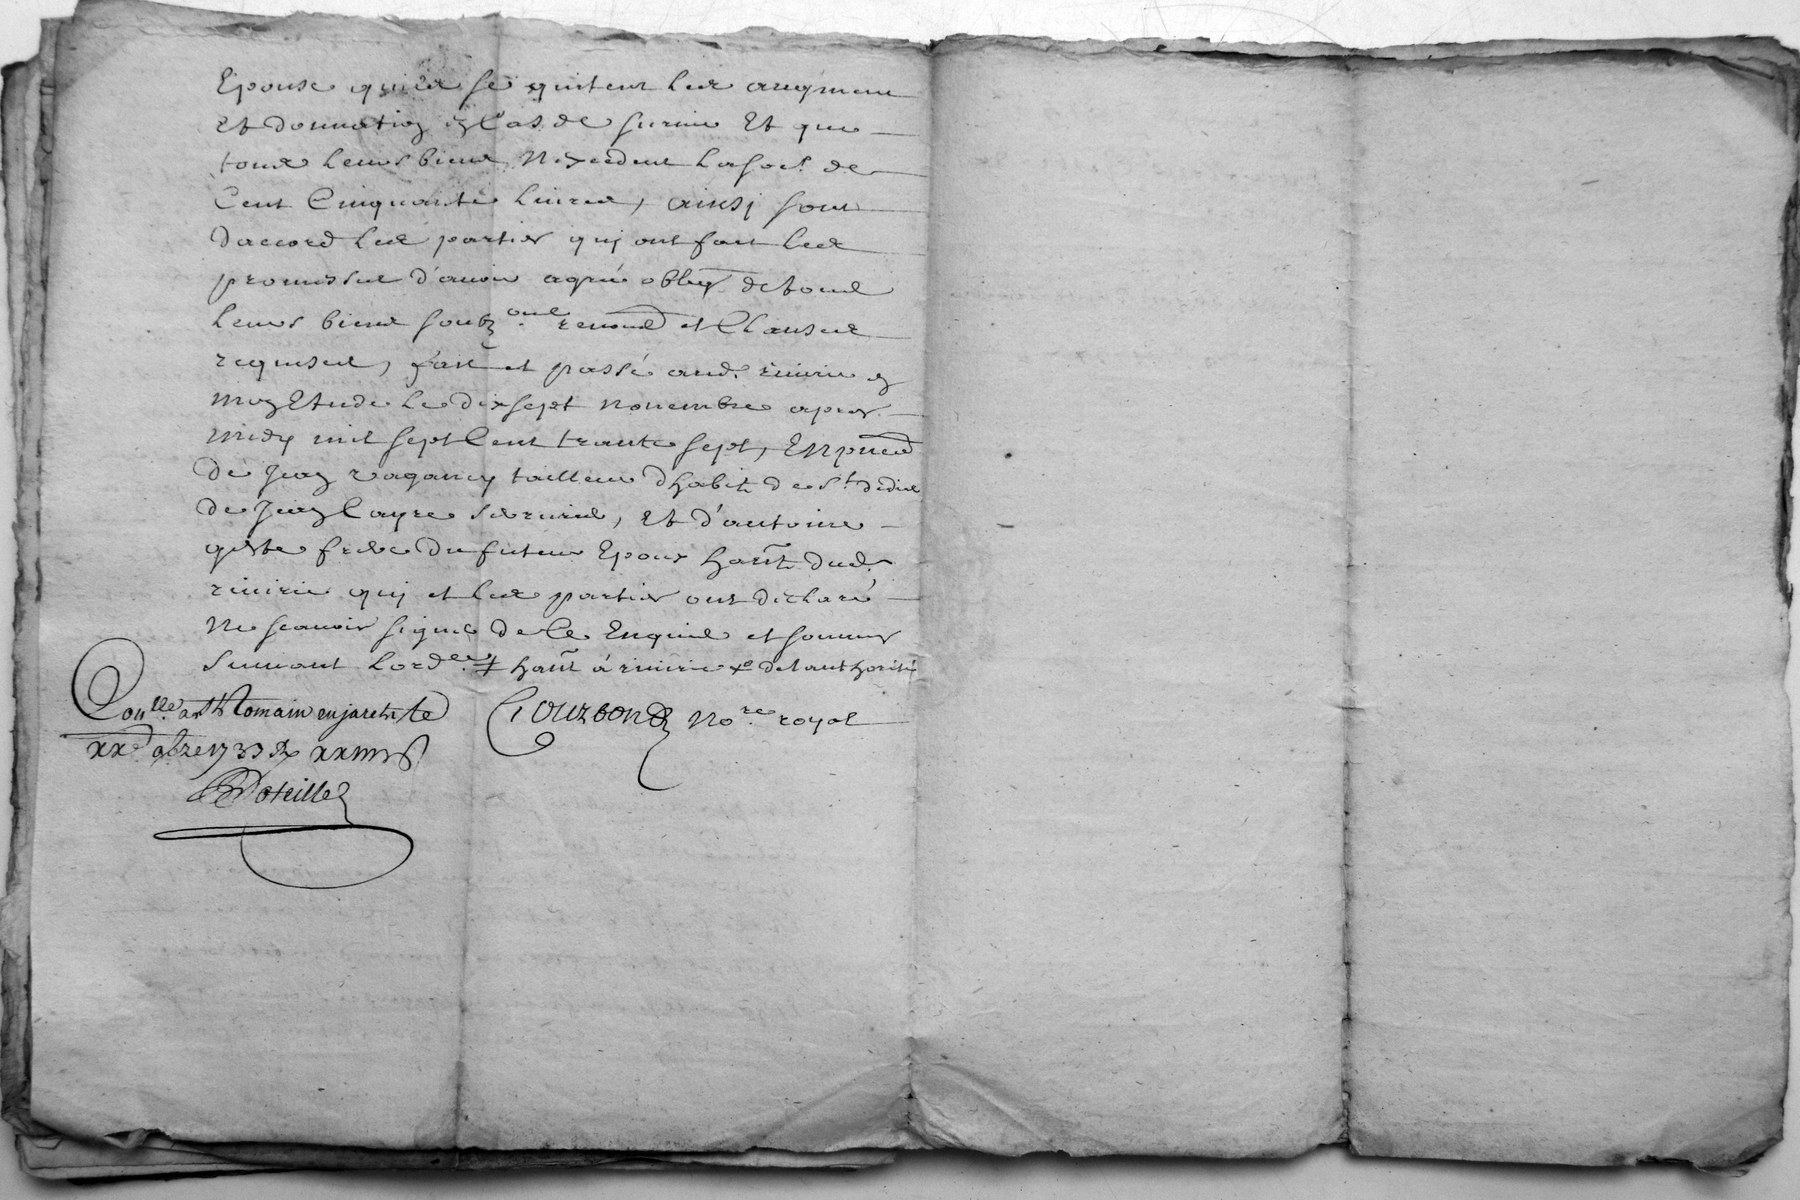 Epouse qui se quitent les augment
Et donnation En Cas de survie Et que
tous leurs biens N'exedent la so.e de
Cent Cinquante livres, ainsi sont
d'accord les parties qui ont fait les
promisses d'avoir agréé oblig de tous
leurs biens soubz renon.d et Clauses
requises, fait et passé aud. riverie En
moy Etude le dix sept novembre apres
midy mil sept Cent trante sept, En pnce
de Jean Vaganey tailleur d'habit de St didier
de Jean Cayre serrurier, et d'antoine
frere du futeur Epoux haut. dud.
riverie qui et les parties ont déclaré
Ne scavoir signer de Ce Enquis et sommés
suivant l'ord.ce ‡ hant à riverie x de lauthorité
Con.lle a St Romain en jarets le
xx.e 9bre 1737
Gourbon No.re royal